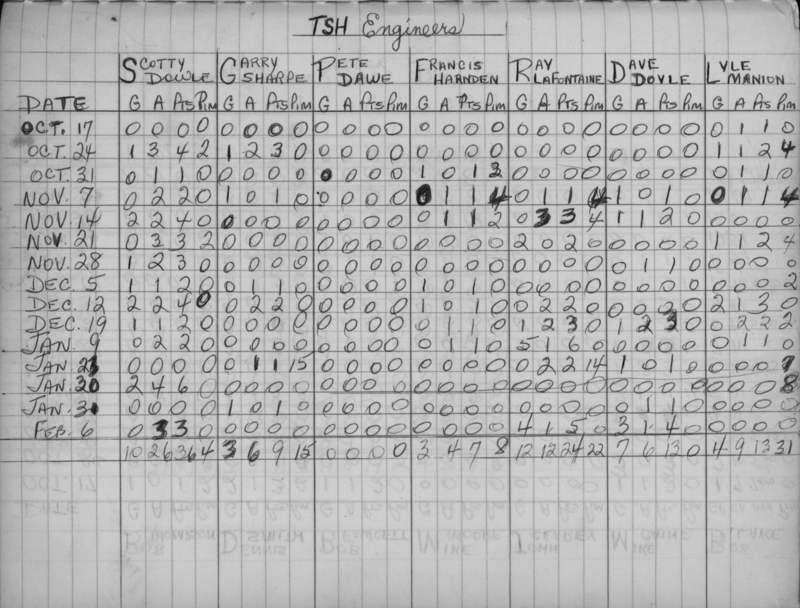 TSH Engineers
SCOTTY DOWLE GARRY SHARPE PETE DAWE FRANCIS HARNDEN RAY LAFONTAINE DAVE DOYLE LYLE MANION
DATE G A Pts Pim G A Pts Pim G A Pts Pim G A Pts Pim G A Pts Pim G A Pts Pim G A Pts Pim
OCT. 17 0 0 0 0 0 0 0 0 0 0 0 0 0 0 0 0 0 0 0 0 0 0 0 0 0 1 1 0
OCT. 24 1 3 4 2 1 2 3 0 0 0 0 0 0 0 0 0 0 0 0 0 0 0 0 0 1 1 2 4
OCT. 31 0 1 1 0 0 0 0 0 0 0 0 0 1 0 1 2 0 0 0 0 0 0 0 0 0 1 1 0
NOV. 7 0 2 2 0 1 0 1 0 0 0 0 0 0 1 1 4 0 1 1 4 1 0 1 0 0 1 1 4
NOV. 14 2 2 4 0 0 0 0 0 0 0 0 0 0 1 1 2 0 3 3 4 1 1 2 0 0 0 0 0
NOV. 21 0 3 3 2 0 0 0 0 0 0 0 0 0 0 0 0 2 0 2 0 0 0 0 0 1 1 2 4
NOV. 28 1 2 3 0 0 0 0 0 0 0 0 0 0 0 0 0 0 0 0 0 0 1 1 0 0 0 0 0
DEC. 5 1 1 2 0 0 1 1 0 0 0 0 0 1 0 1 0 0 0 0 0 0 0 0 0 0 0 0 2
DEC. 12 2 2 4 0 0 2 2 0 0 0 0 0 1 0 1 0 0 2 2 0 0 0 0 2 1 3 0
DEC. 19 1 1 2 0 0 0 0 0 0 0 0 0 0 1 1 0 1 2 3 0 1 2 3 0 0 2 2 2
JAN. 9 0 2 2 0 0 0 0 0 0 0 0 0 0 1 1 0 5 1 6 0 0 0 0 0 0 1 1 0
JAN. 0 0 0 0 0 1 1 15 0 0 0 0 0 0 0 0 0 2 2 14 1 0 1 0 0 0 0
JAN. 2 4 6 0 0 0 0 0 0 0 0 0 0 0 0 0 0 0 0 0 0 0 0 0 0 0 0 8
JAN. 0 0 0 0 1 0 1 0 0 0 0 0 0 0 0 0 0 0 0 0 0 1 1 0 0 0 0 0
FEB. 6 0 3 3 0 0 0 0 0 0 0 0 0 0 0 0 0 4 1 5 0 3 1 4 0 0 0 0 0
10 26 36 4 3 6 9 15 0 0 0 0 3 4 7 8 12 12 24 22 7 6 13 0 4 9 13 31